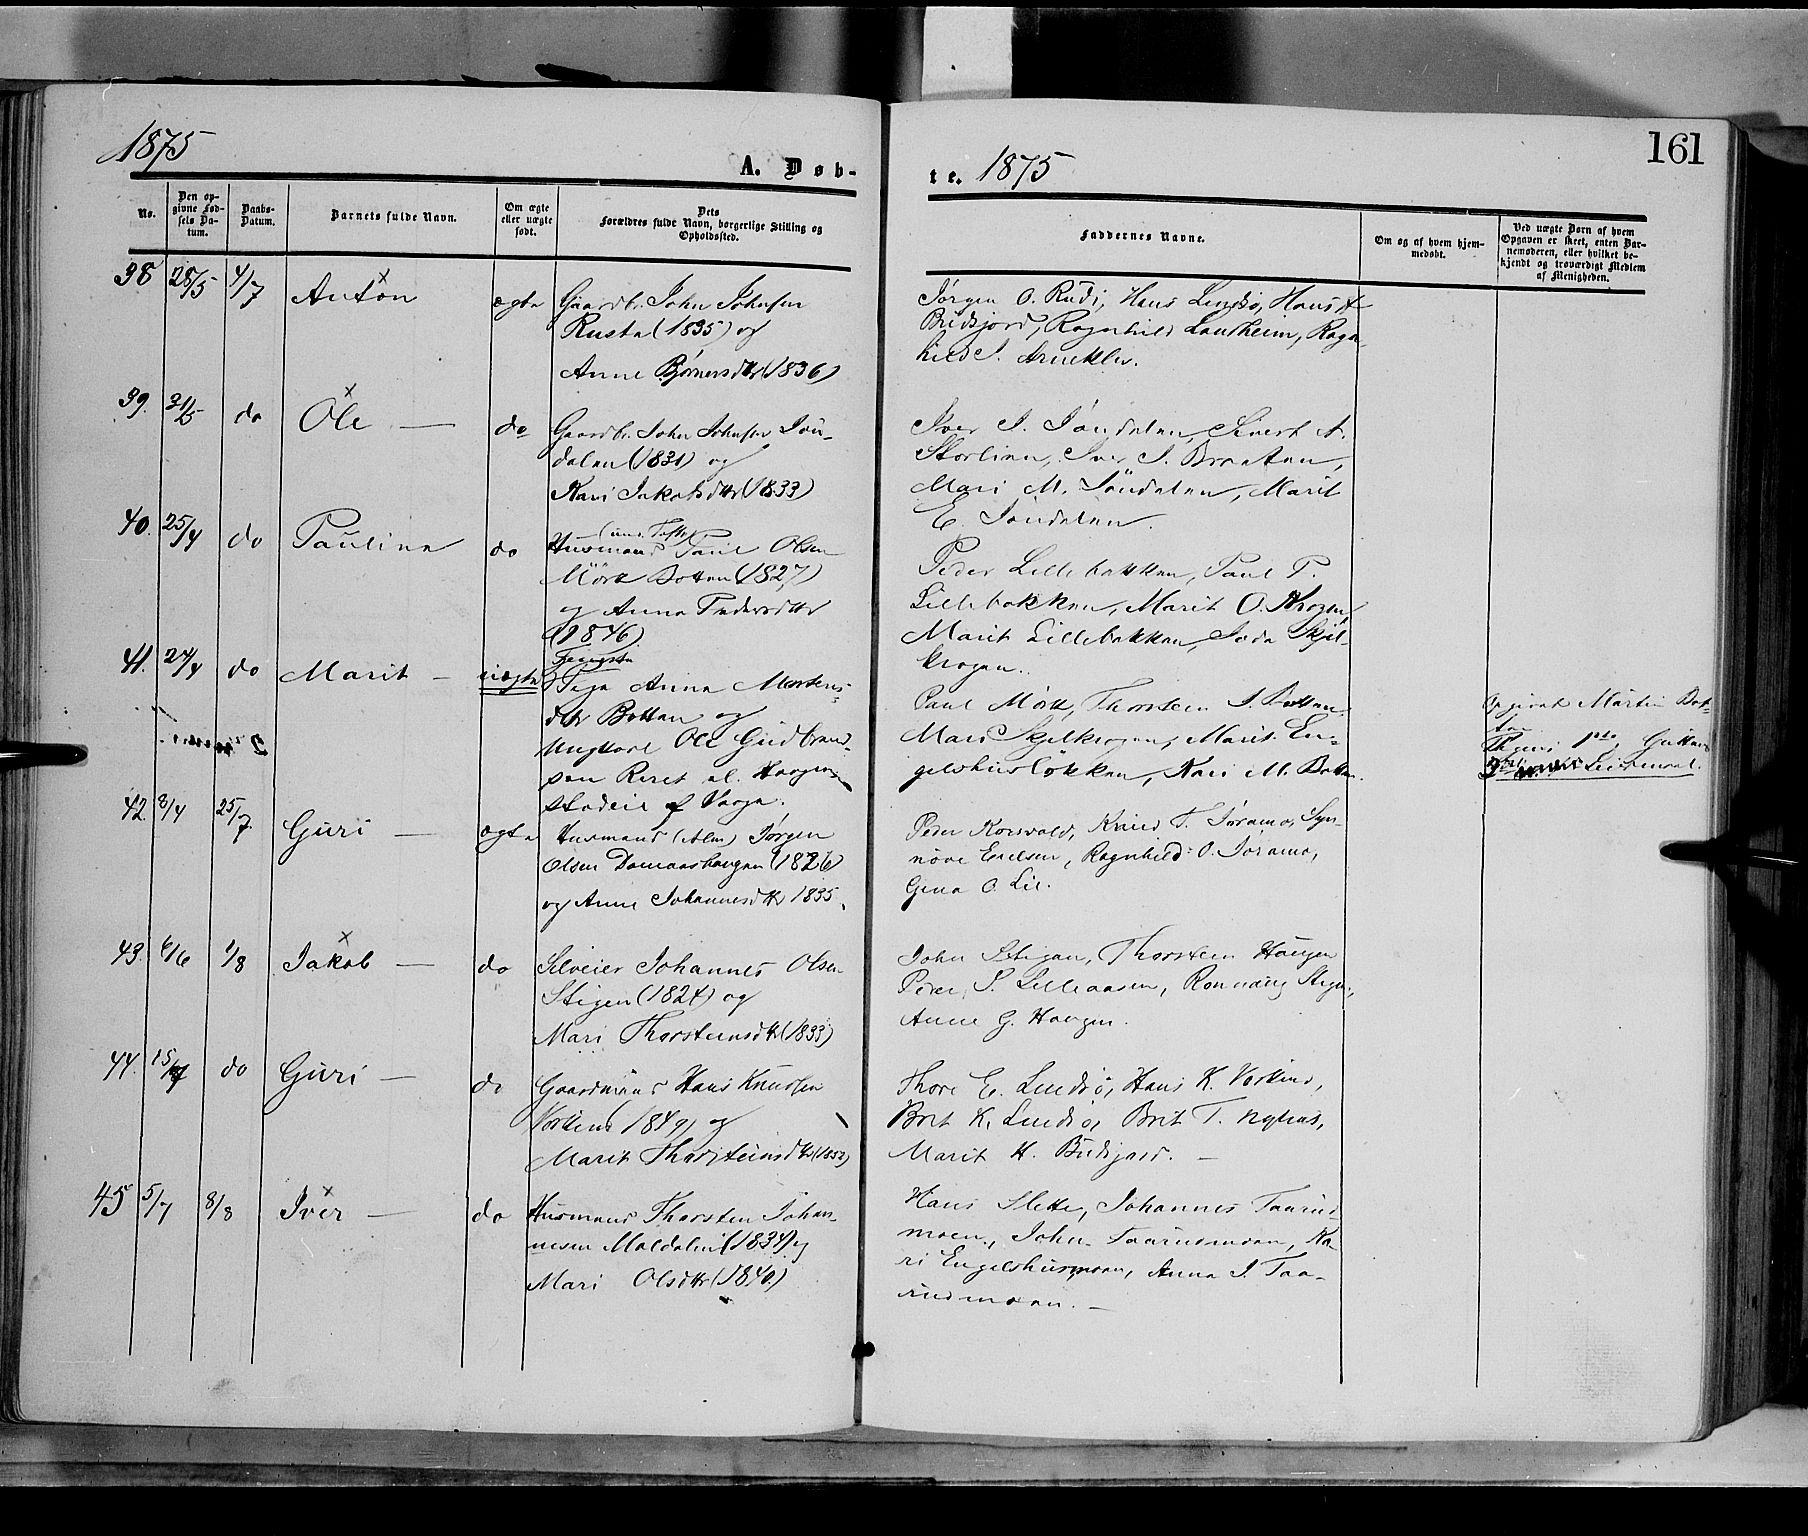 1875
A. Døb-
te. 1875
161
No.
Den op-
givne Fød-
sels Da-
tum.
Daabs-
Datum.
Barnets fulde Navn.
Om ægte
eller uægte
født.
Dets
Forældres fulde Navn, borgerlige Stilling og
Opholdssted.
Faddernes Navne.
Om og af hvem hjem-
medøbt.
Ved uægte Børn af hvem
Opgaven er skeet, enten Bar-
nemoderen, eller hvilket be-
kjendt og troværdigt Medlem
af Menigheden.
38 28/5 4/7 Anton ægte
Gaardbr. John Johnsen
Rusta (1835) og
Anne Bjørnersdttr (1836)
Jørgen O. Rudi, Hans Lendsø, Hans A
Budsjord, Ragnhild Lautheim, Ragn
hild I.
39. 31/5 do Ole — do
Gaardbr. John Johnsen Jøn-
dalen (1831) og
Kari Jakobsdttr (1833)
Iver I. Jøndalen, Sivert A.
Storlien, Iver I. Braaten,
Mari M. Jöndalen, Marit
E. Jøndalen.
40. 25/4 do Pauline do
Husmand Paul Olsen
Mörk Botten (1827)
og Anne Pedersdttr
(1846)
Peder Lillebakken, Paul P.
Lillebakken, Marit O. Krogen
Marit Lillebakken, Skjel-
krogen.
41. 24/4 do Marit — uægte
Pige Anne Mortens-
dtr Botten og
Ungkarl Ole Gudbrand-
sen
af Vaage.
Paul Mörk, Thorstein I. Botten
Mari Skjelkrogen, Marit En-
gelshuslökken, Kari M. Botten.
Opgivet Martin Bot-
ten
42. 8/4 25/7. Guri — ægte
Husmand (Alm) Jørgen
Olsen Domaashaugen (1826)
og Anne Johannesdttr 1835.
Peder Korsvold, Knud T. Joramo, Syn-
növe Endsen, Ragnhild O. Joramo,
Gina O. Lie.
43. 6/6 1/8 Jakob — do
Selveier Johannes Olsen
Stigen (1824) og
Mari Thorsteinsdttr (1833)
John Stigen, Thorstein Haugen
Peder S. Lilleaasen, Rönnaug Stigen,
Anne G. Haugen.
44. 15/7 do Guri — do
Gaardmand Hans Knudsen
Vorkind 1849) og
Marit Thorsteinsdttr (1852)
Thore E. Lendsø, Hans K. Vorkind,
Brit K. Lendsø, Brit T. Nyhus,
Marit H. Budsjord. —
45 5/7 8/8 Iver — do
Husmand Thorsten Johan-
nesen Moldalen (1834) og
Mari Olsdttr (1840)
Hans Slette, Johannes Taarud-
moen, John Taarudmoen, Ka-
ri Engelshusmoen, Anne I. Taa-
rudmoen. —